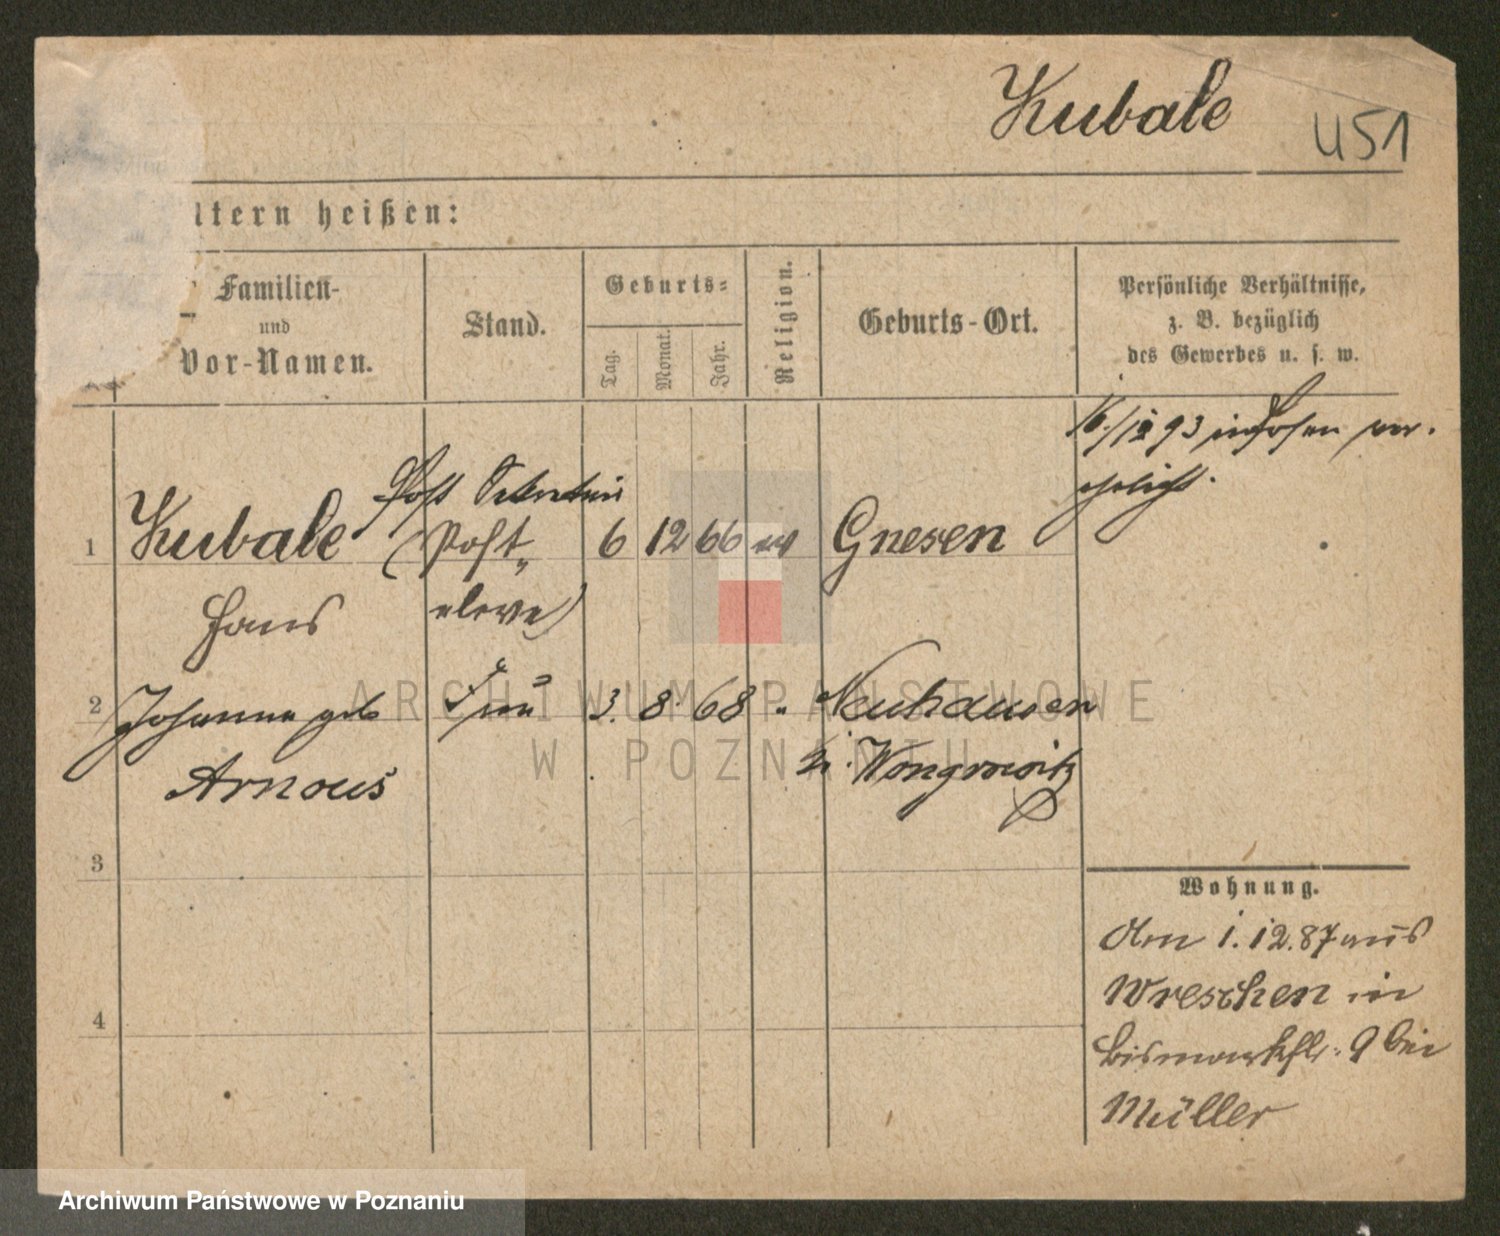 Kubale
U51
ltern heißen:
Familien-
und
Vor-Namen.
Stand.
Geburts-
Tag.
Monat.
Jahr.
Religion.
Geburts-Ort.
Persönliche Verhältnisse,
z. B. bezüglich
des Gewerbes u. s. w.
16./12 93 in Posen ver.
ehelicht.
Post Sekretair
1 Kubale (Post„ 6 12 66 ev Gnesen
Hans eleve)
2 Johanna geb Frau 3. 8. 68 „ Neuhausen
Arnous Kr. Wongrowitz
3
4
Wohnung.
Am 1.12.87 aus
Wreschen in
Bismarkstr. 9 bei
Müller
ARCHIWUM PAŃSTWOWE
W POZNANIU
Archiwum Państwowe w Poznaniu